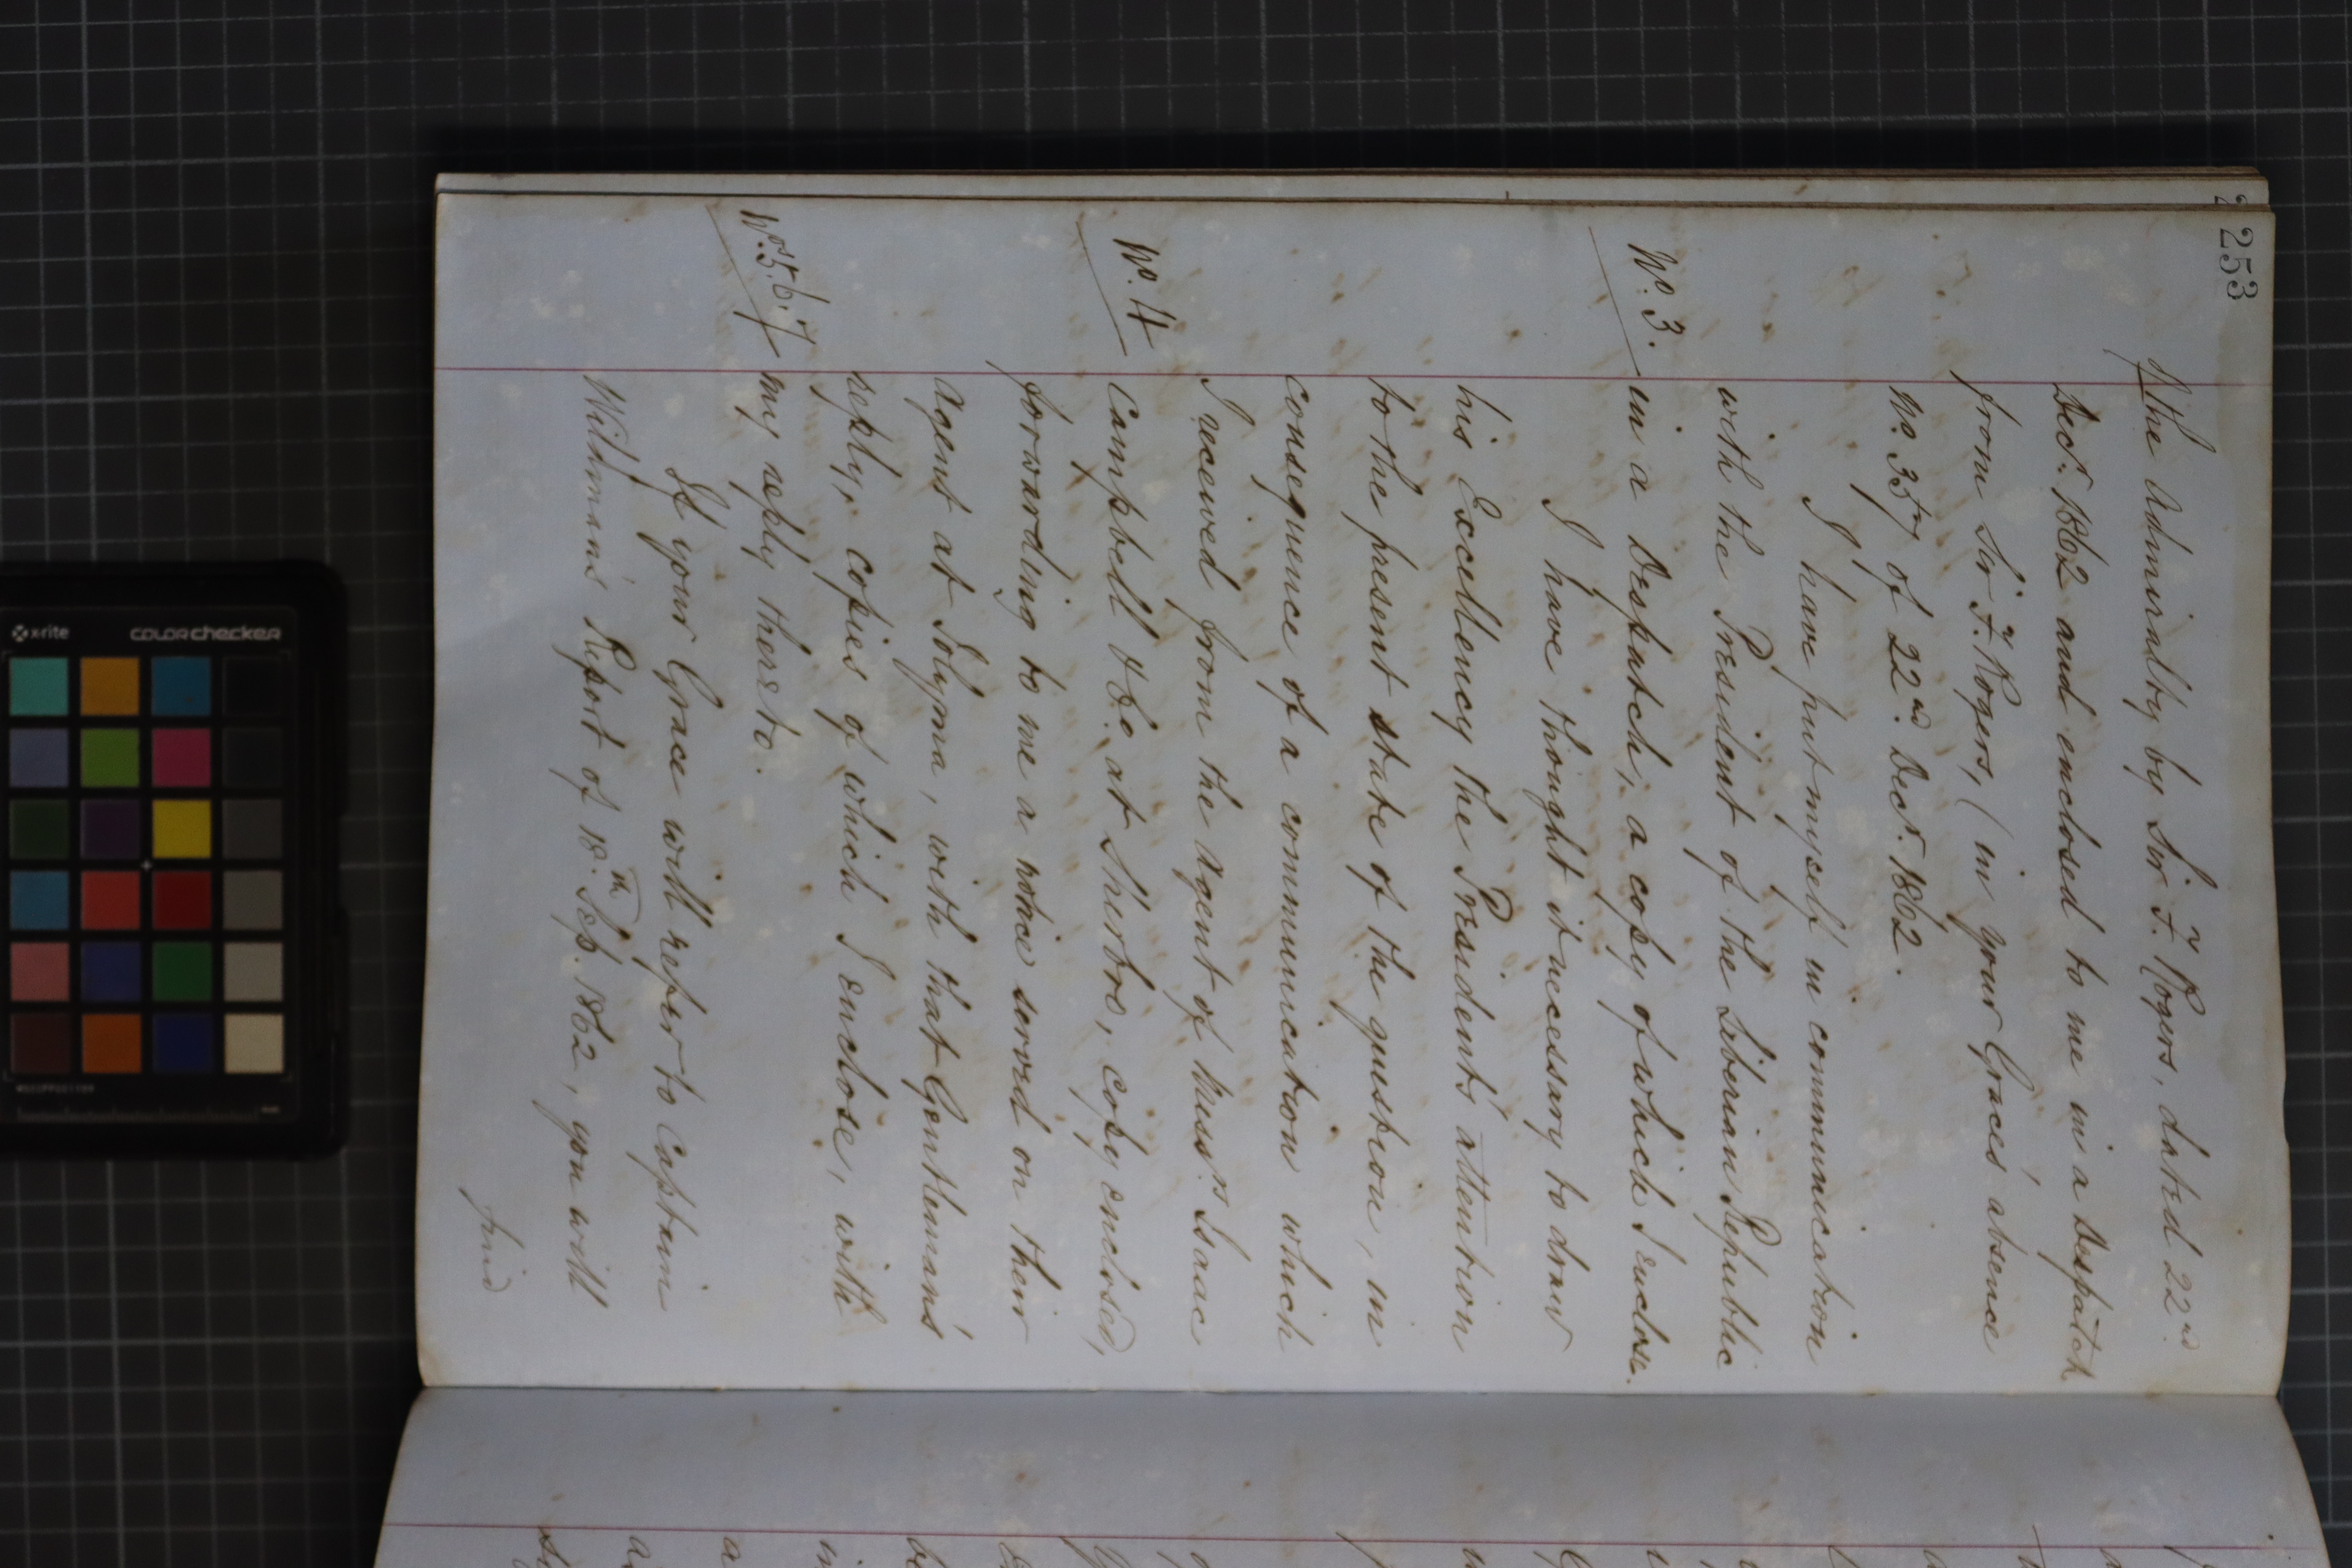 253
of the Admiralty by Sir F. Rogers, dated 22nd.
Decr. 1862 and enclosed to me in a Despatch
from Sir F. Rogers, (in your Grace's absence
No. 357 of 22nd. Decr. 1862.
I have put myself in communication
with the President of the Liberian Republic
No. 3. in a Despatch, a copy of which I enclose.
I have thought it necessary to draw
his Excellency the President's attention
to the present state of the question, in
consequence of a communication which
I received from the Agent of Messrs. Isaac
No. 4 Campbell & Co. at Sherbro, copy enclosed,
forwarding to me a notice served on their
Agent at Solyma, with that Gentleman's
reply, copies of which I enclose, with
Nos. 5.6.7 my reply thereto.
If your Grace will refer to Captain
Wildman's Report of 18th. Sep. 1862, you will
find
x-rite
colorchecker